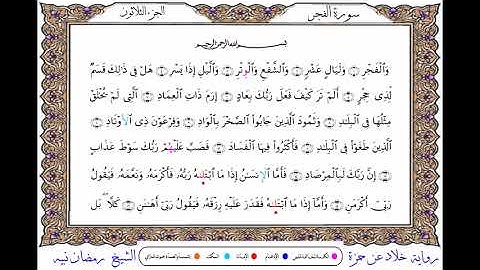 سورة الفجر
الجزء الثلاثون
بسم الله الرحمن الرحيم
وَٱلْفَجْرِ ۝ وَلَيَالٍ عَشْرٍ ۝ وَٱلشَّفْعِ وَٱلْوِتْرِ ۝ وَٱلَّيْلِ إِذَا يَسْرِ ۝ هَلْ فِي ذَٰلِكَ قَسَمٌ
لِّذِي حِجْرٍ ۝ أَلَمْ تَرَ كَيْفَ فَعَلَ رَبُّكَ بِعَادٍ ۝ إِرَمَ ذَاتِ ٱلْعِمَادِ ۝ ٱلَّتِي لَمْ يُخْلَقْ
مِثْلُهَا فِي ٱلْبِلَٰدِ ۝ وَثَمُودَ ٱلَّذِينَ جَابُوا۟ ٱلصَّخْرَ بِٱلْوَادِ ۝ وَفِرْعَوْنَ ذِي ٱلْأَوْتَادِ ۝
ٱلَّذِينَ طَغَوْا۟ فِي ٱلْبِلَٰدِ ۝ فَأَكْثَرُوا۟ فِيهَا ٱلْفَسَادَ ۝ فَصَبَّ عَلَيْهُمْ رَبُّكَ سَوْطَ عَذَابٍ
۝ إِنَّ رَبَّكَ لَبِٱلْمِرْصَادِ ۝ فَأَمَّا ٱلْإِنسَٰنُ إِذَا مَا ٱبْتَلَىٰهُ رَبُّهُۥ فَأَكْرَمَهُۥ وَنَعَّمَهُۥ فَيَقُولُ
رَبِّي أَكْرَمَنِ ۝ وَأَمَّا إِذَا مَا ٱبْتَلَىٰهُ فَقَدَرَ عَلَيْهِ رِزْقَهُۥ فَيَقُولُ رَبِّي أَهَٰنَنِ ۝ كَلَّا بَل
رواية خلاد عن حمزة
الإدغام
الإمالة
السكت
الشيخ رمضان نبيه